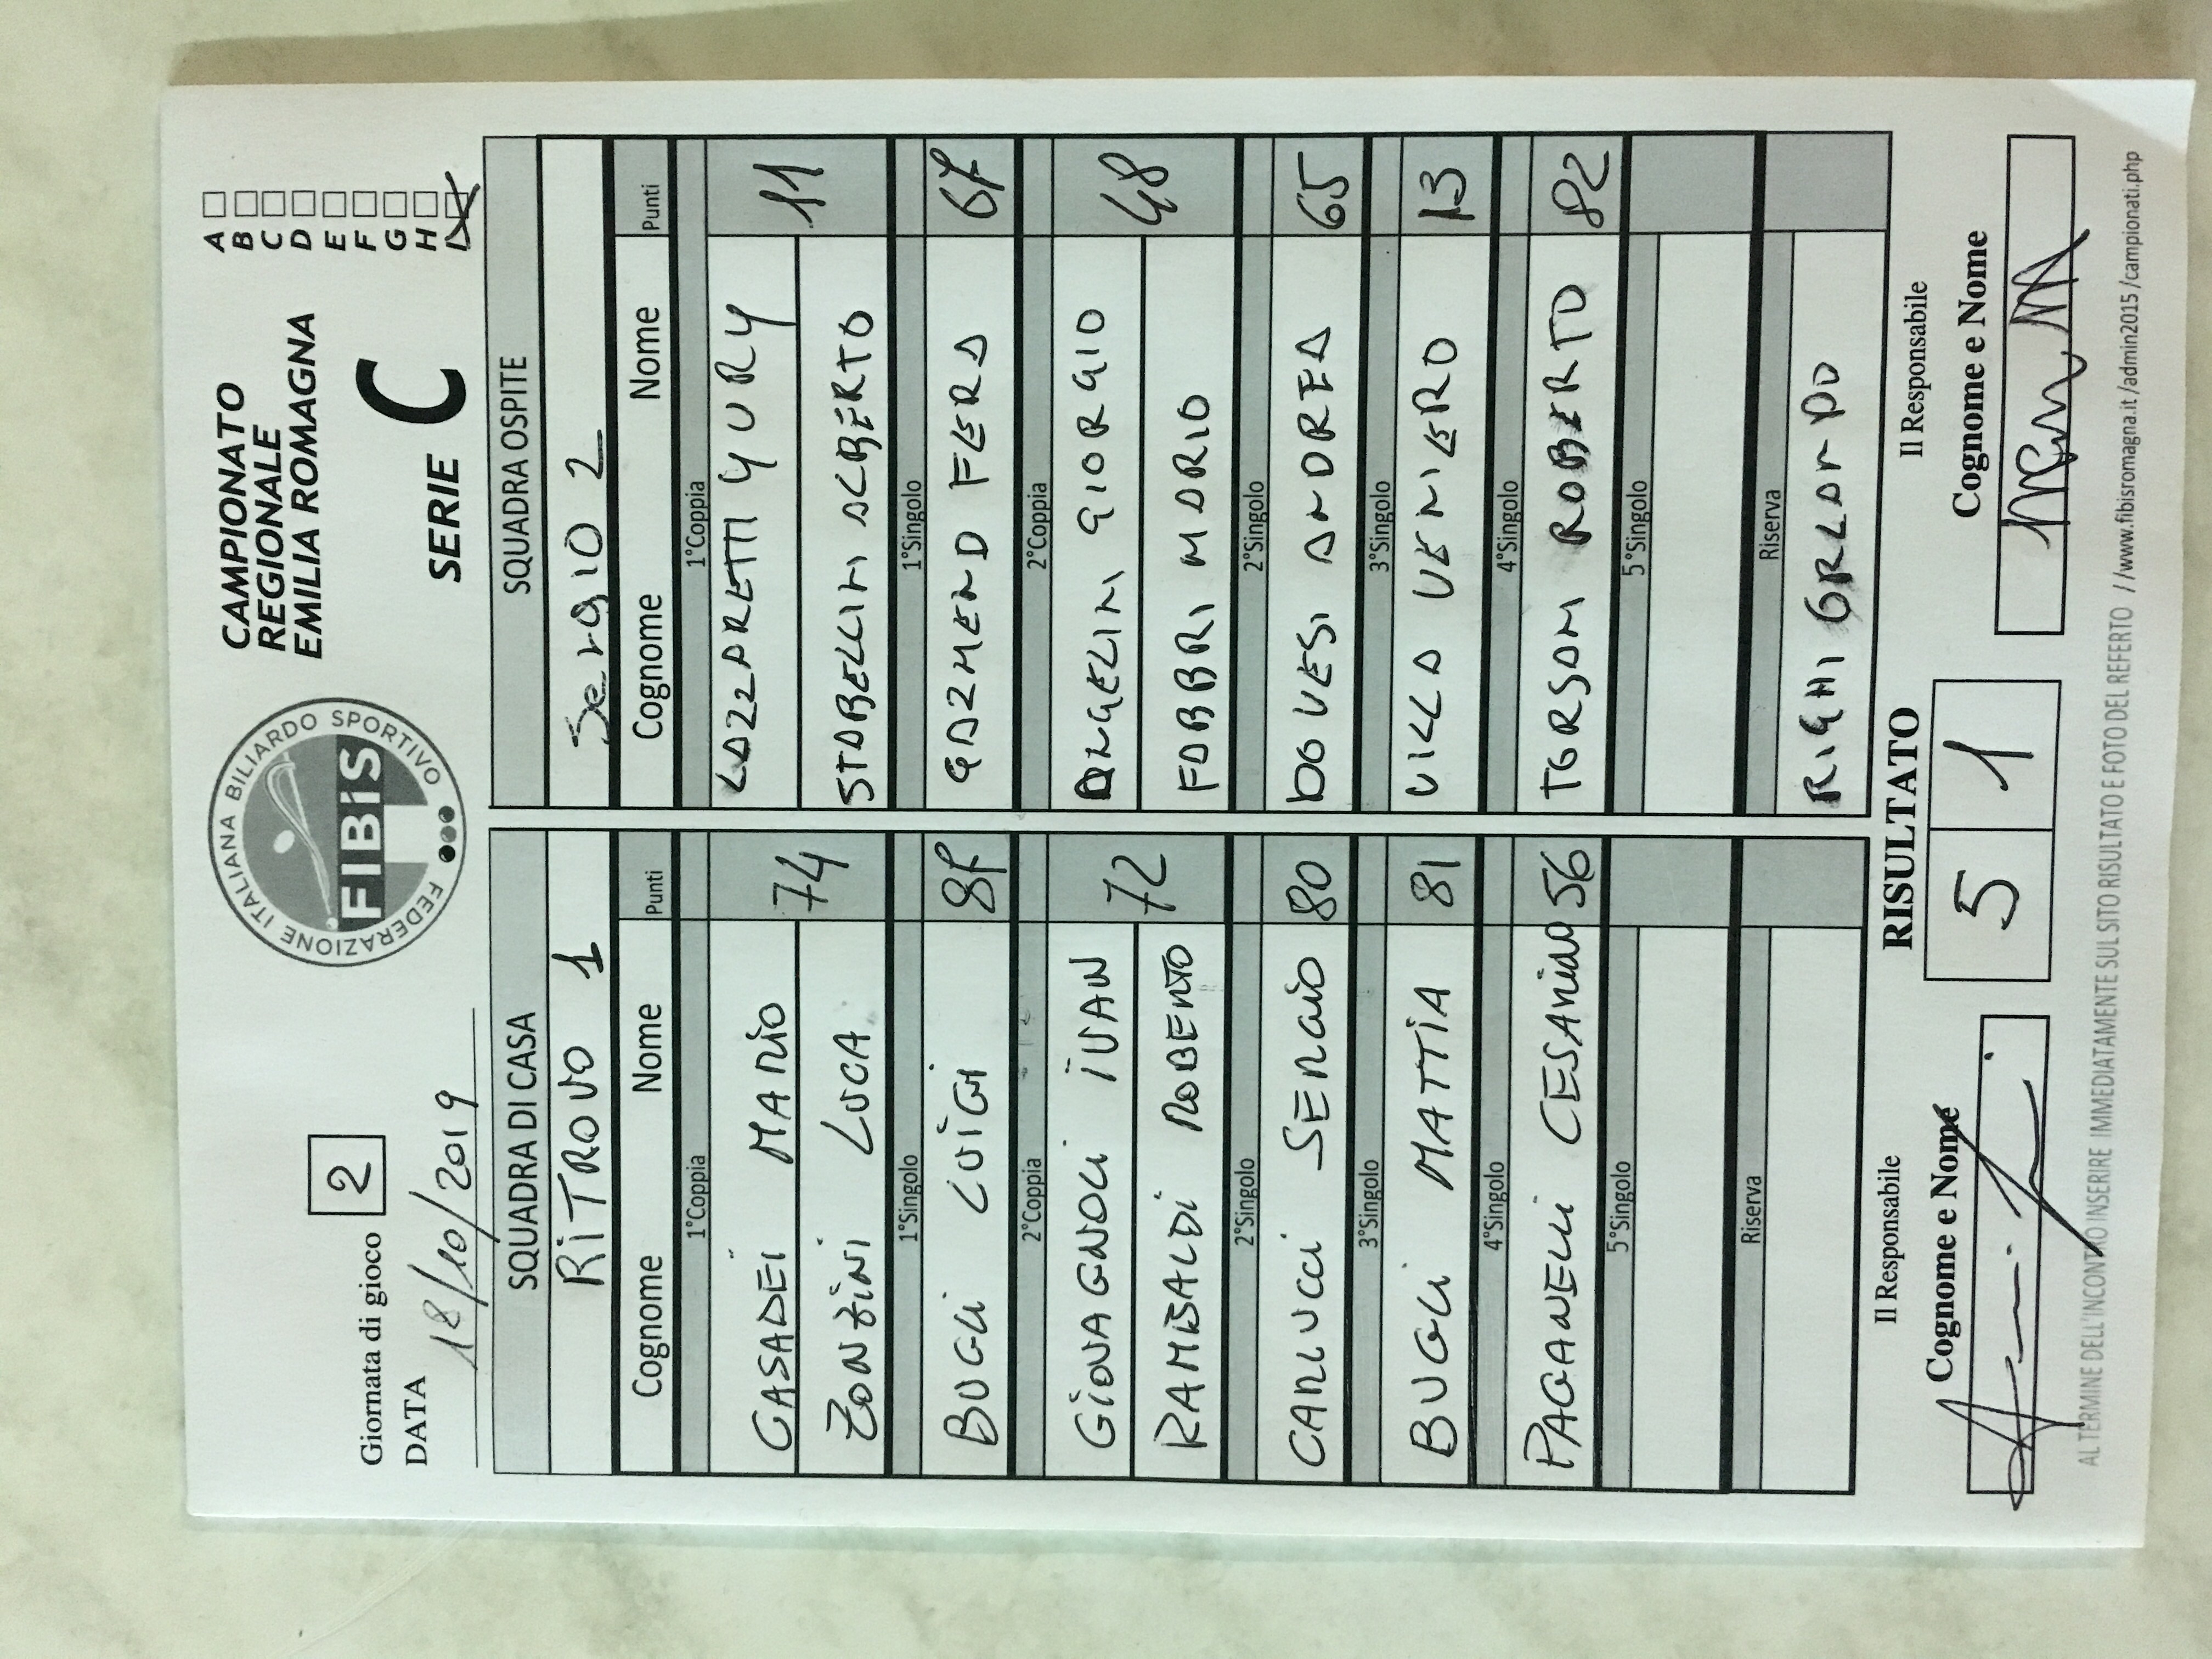 Giornata di gioco 2
DATA 18/10/2019
FEDERAZIONE ITALIANA BILIARDO SPORTIVO
FIBiS
CAMPIONATO
REGIONALE
EMILIA ROMAGNA
SERIE C
A
B
C
D
E
F
G
H
SQUADRA DI CASA
RiTROVO 1
Cognome Nome Punti
1°Coppia
CASADEI MARIO 74
ZONZINI LUCA
1°Singolo
BUGLi LUiGi
2°Coppia
GiOVAGNOLi iVAN 72
RAMBALDi ROBERTO
2°Singolo
CARLUCCi SERGiO 80
3°Singolo
BUGLi MATTiA 81
4°Singolo
PAGANELLi CESARiNO 56
5°Singolo
Riserva
SQUADRA OSPITE
Sergio 2
Cognome Nome Punti
1°Coppia
LAZZARETTI YURY 11
STABELLINI ALBERTO
1°Singolo
GAZMEND FERA 67
2°Coppia
ANGELINI GIORGIO 48
FABBRI MARIO
2°Singolo
DOVESI ANDREA 65
3°Singolo
VILLA VENIERO 13
4°Singolo
TORSANI ROBERTO 82
5°Singolo
Riserva
RIGHI ORLANDO
RISULTATO
5 1
Il Responsabile
Cognome e Nome
Il Responsabile
Cognome e Nome
AL TERMINE DELL'INCONTRO INSERIRE IMMEDIATAMENTE SUL SITO RISULTATO E FOTO DEL REFERTO //www.fibisromagna.it/admin2015/campionati.php